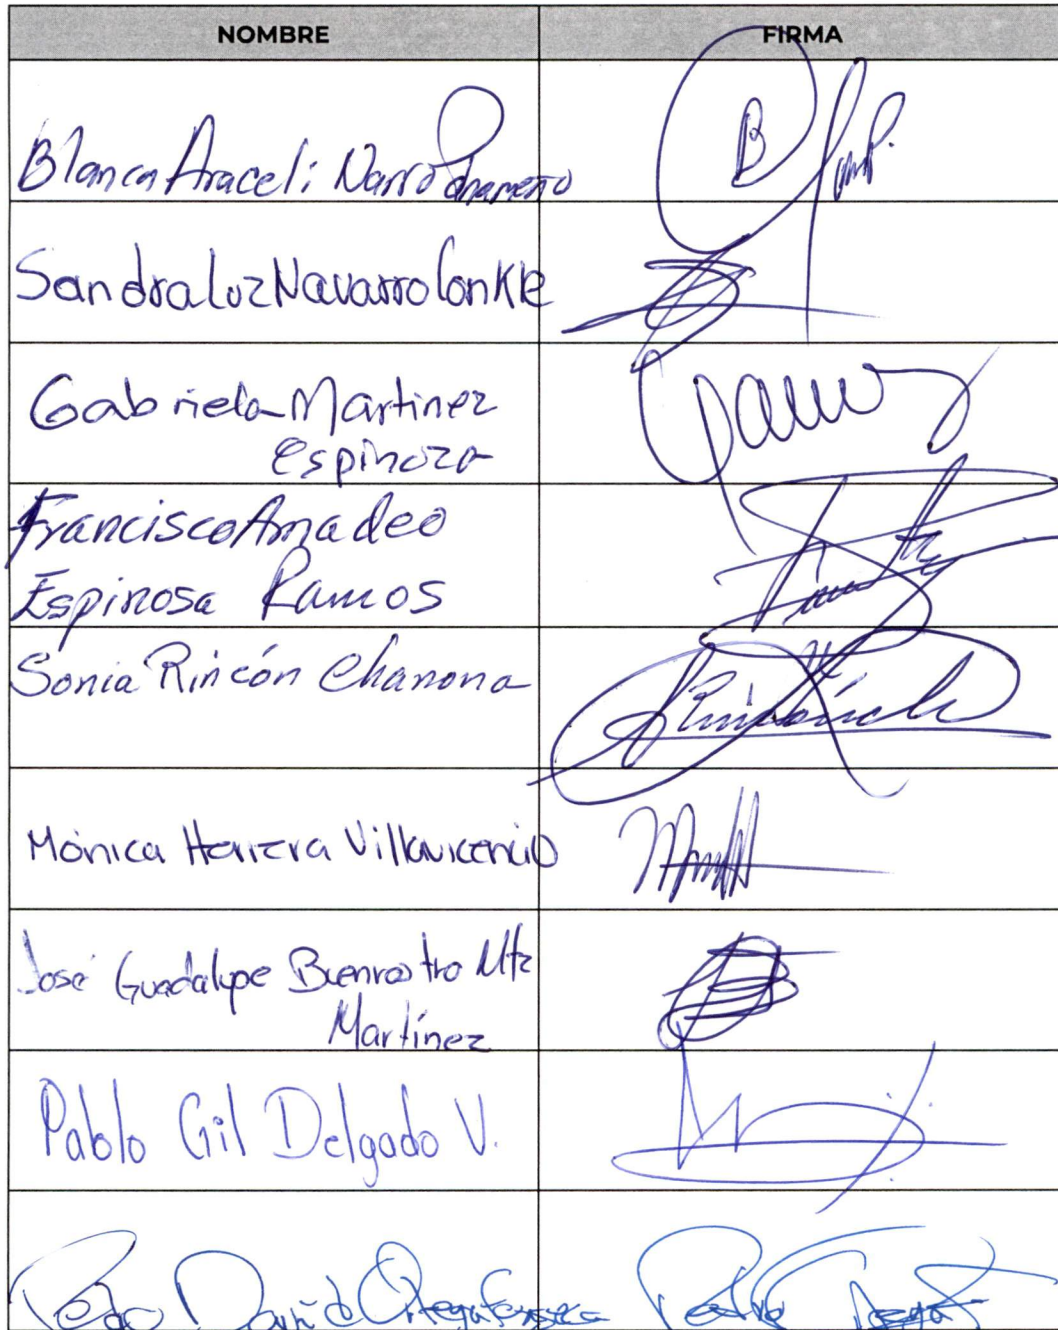 NOMBRE FIRMA
Blanca Araceli Narro
B
Sandra Luz Navarro Conkle
Gabriela Martinez
Espinoza
Francisco Amadeo
Espinosa Ramos
Sonia Rincón Chanona
Mónica Herrera Villavicencio
José Guadalupe Buenrostro Mtz
Martínez
Pablo Gil Delgado V.
Pedro David Ortega Fonseca Pedro Ortega